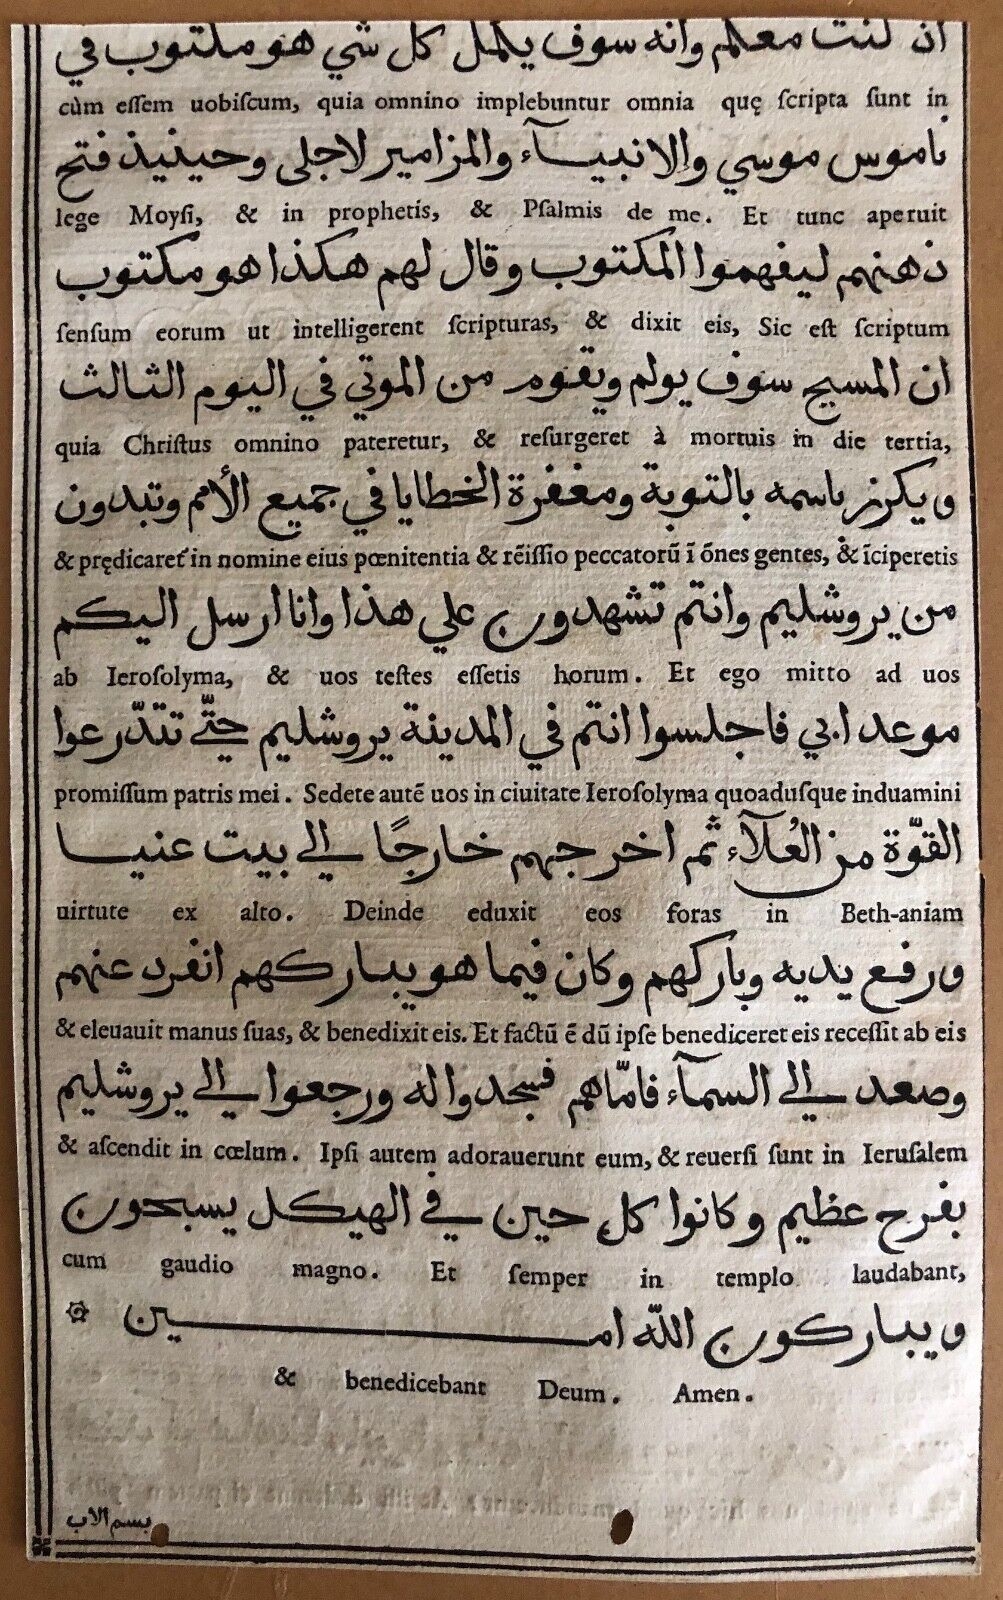 ان كنت معكم وانه سوف يكمل كل شي هو مكتوب في
cùm essem uobiscum, quia omnino implebuntur omnia quę scripta sunt in
ناموس موسي والانبيآء والمزامير لاجلى وحينيذ فتح
lege Moysi, & in prophetis, & Psalmis de me. Et tunc aperuit
ذهنهم ليفهموا المكتوب وقال لهم هكذا هو مكتوب
sensum eorum ut intelligerent scripturas, & dixit eis, Sic est scriptum
ان المسيح سوف يولم ويقوم من الموتي في اليوم الثالث
quia Christus omnino pateretur, & resurgeret à mortuis in die tertia,
ويكرز باسمه بالتوبة ومغفرة الخطايا في جميع الأمم وتبدون
& prędicaret in nomine eius pœnitentia & rẽissio peccatorũ ĩ õnes gentes, & ĩciperetis
من يروشليم وانتم تشهدون علي هذا وانا ارسل اليكم
ab Ierosolyma, & uos testes essetis horum. Et ego mitto ad uos
موعد ابي فاجلسوا انتم في المدينة يروشليم حتّي تتدّرعوا
promissum patris mei. Sedete autẽ uos in ciuitate Ierosolyma quoadusque induamini
القوّة من العُلآء ثم اخرجهم خارجًا الي بيت عنيا
uirtute ex alto. Deinde eduxit eos foras in Beth-aniam
ورفع يديه وباركهم وكان فيما هو يباركهم انفرد عنهم
& eleuauit manus suas, & benedixit eis. Et factũ ẽ dũ ipse benediceret eis recessit ab eis
وصعد الي السمآء فامّا هم فسجدوا له ورجعوا الي يروشليم
& ascendit in cœlum. Ipsi autem adorauerunt eum, & reuersi sunt in Ierusalem
بفرح عظيم وكانوا كل حين في الهيكل يسبحون
cum gaudio magno. Et semper in templo laudabant,
ويباركون الله امــــــين ۞
& benedicebant Deum. Amen.
بسم الاب